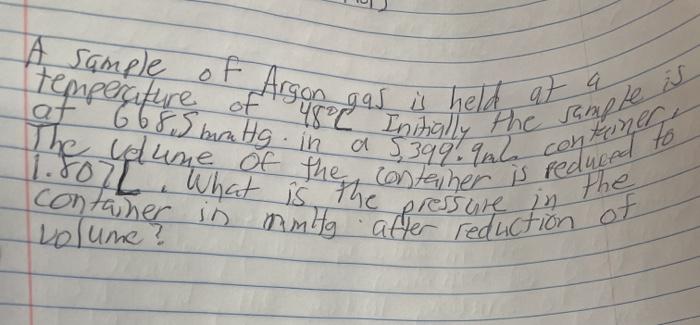 A sample of Argon gas is held at a
temperature of 48°C Initially the sample is
at 668.5 mmHg. in a 5,399.9mL container.
The volume of the container is reduced to
1.807L. What is the pressure in the
container in mmHg after reduction of
volume?